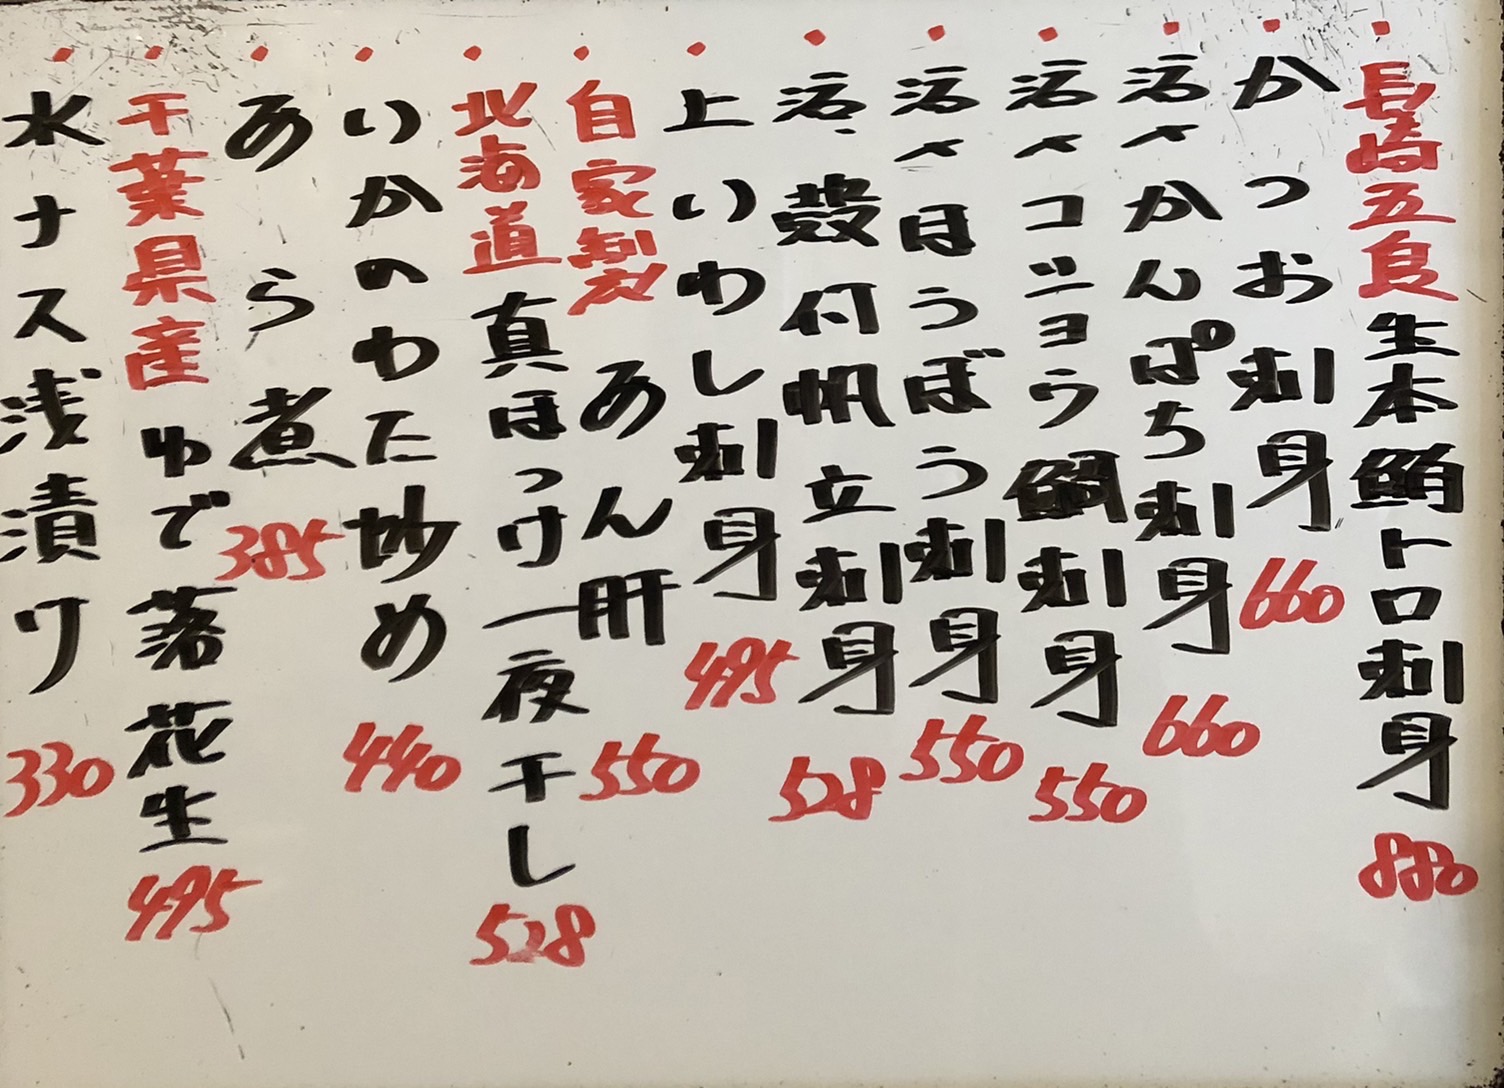 長崎五良生本鮪トロ刺身 880
かつお刺身 660
活〆かんぱち刺身 660
活〆コショウ鯛刺身 550
活〆ほうぼう刺身 550
活、殻付帆立刺身 528
上いわし刺身 495
自家製あん肝 550
北海道真ほっけ一夜干し 528
いかのわた炒め 440
あら煮 385
千葉県産ゆで落花生 495
水ナス浅漬ケ 330